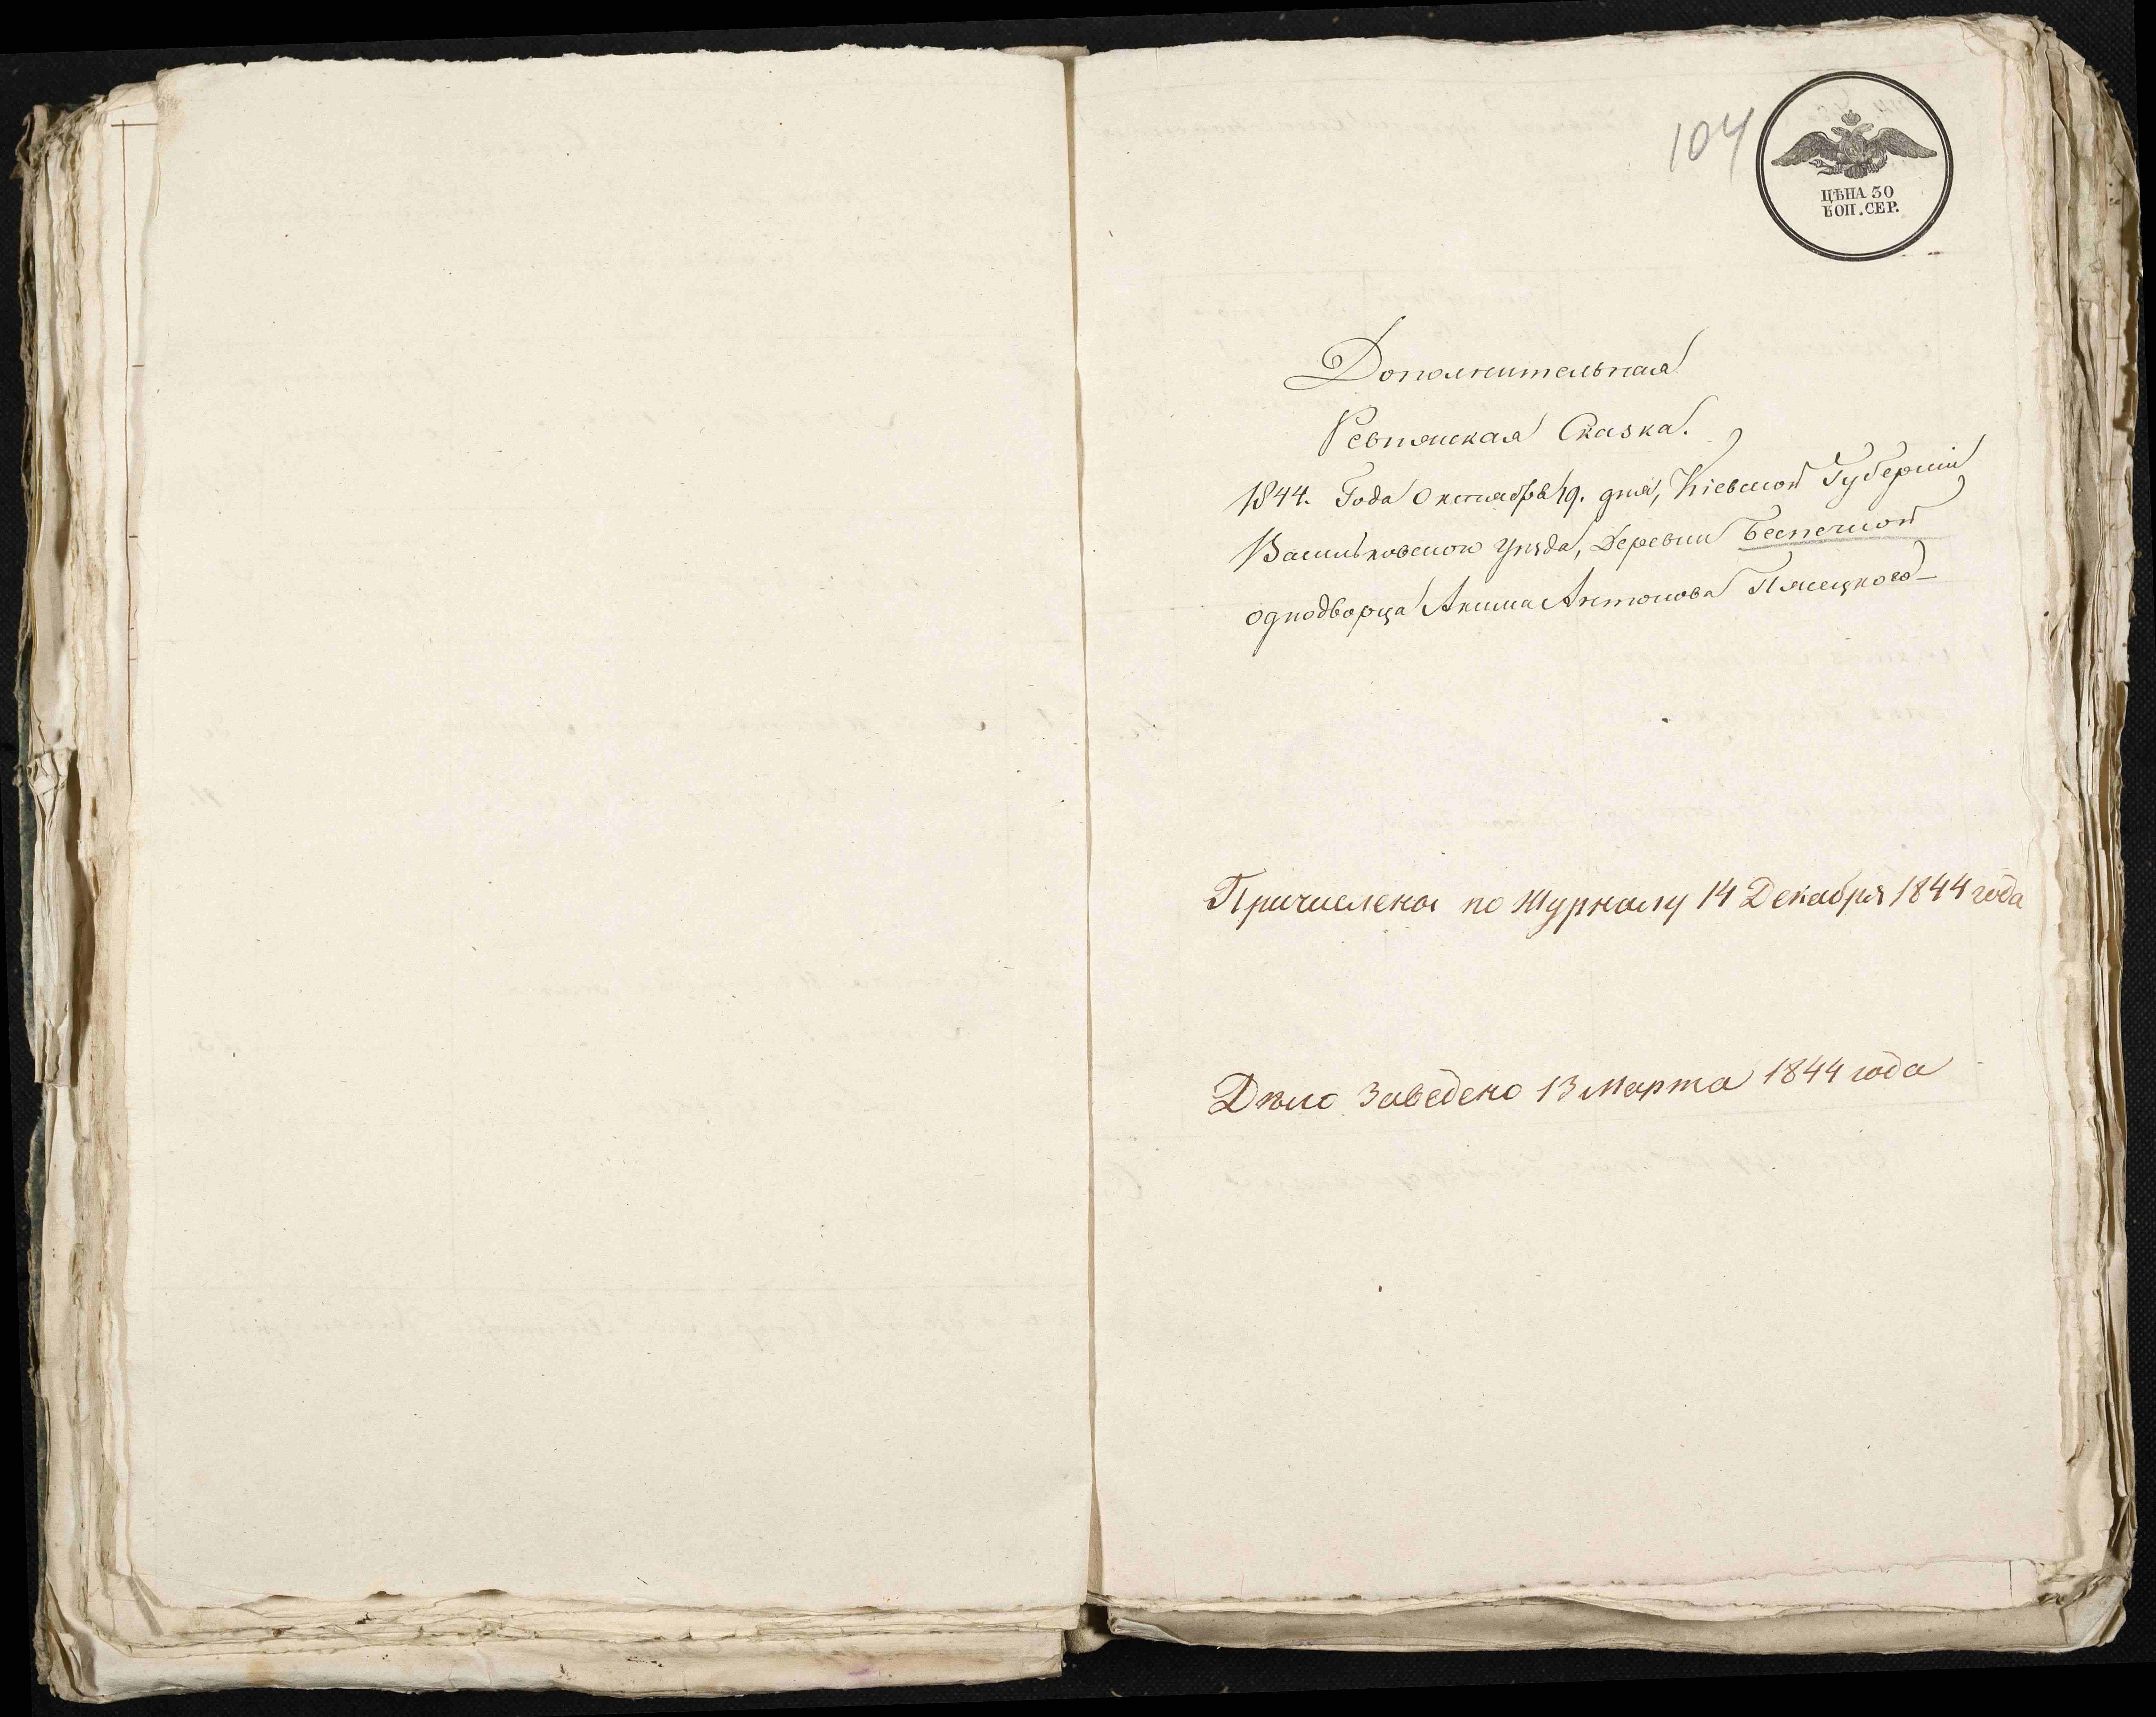 104
ЦѢНА 30
КОП. СЕР.
Дополнительная
Ревизская Сказка.
1844. Года Октября 19. дня, Кіевской Губерніи
Васильковского уѣзда, Деревни Беспечной
однодворца Акима Антонова Пясецкого
Причислены по Журналу 14 Декабря 1844 года
Дѣло заведено 13 Марта 1844 года